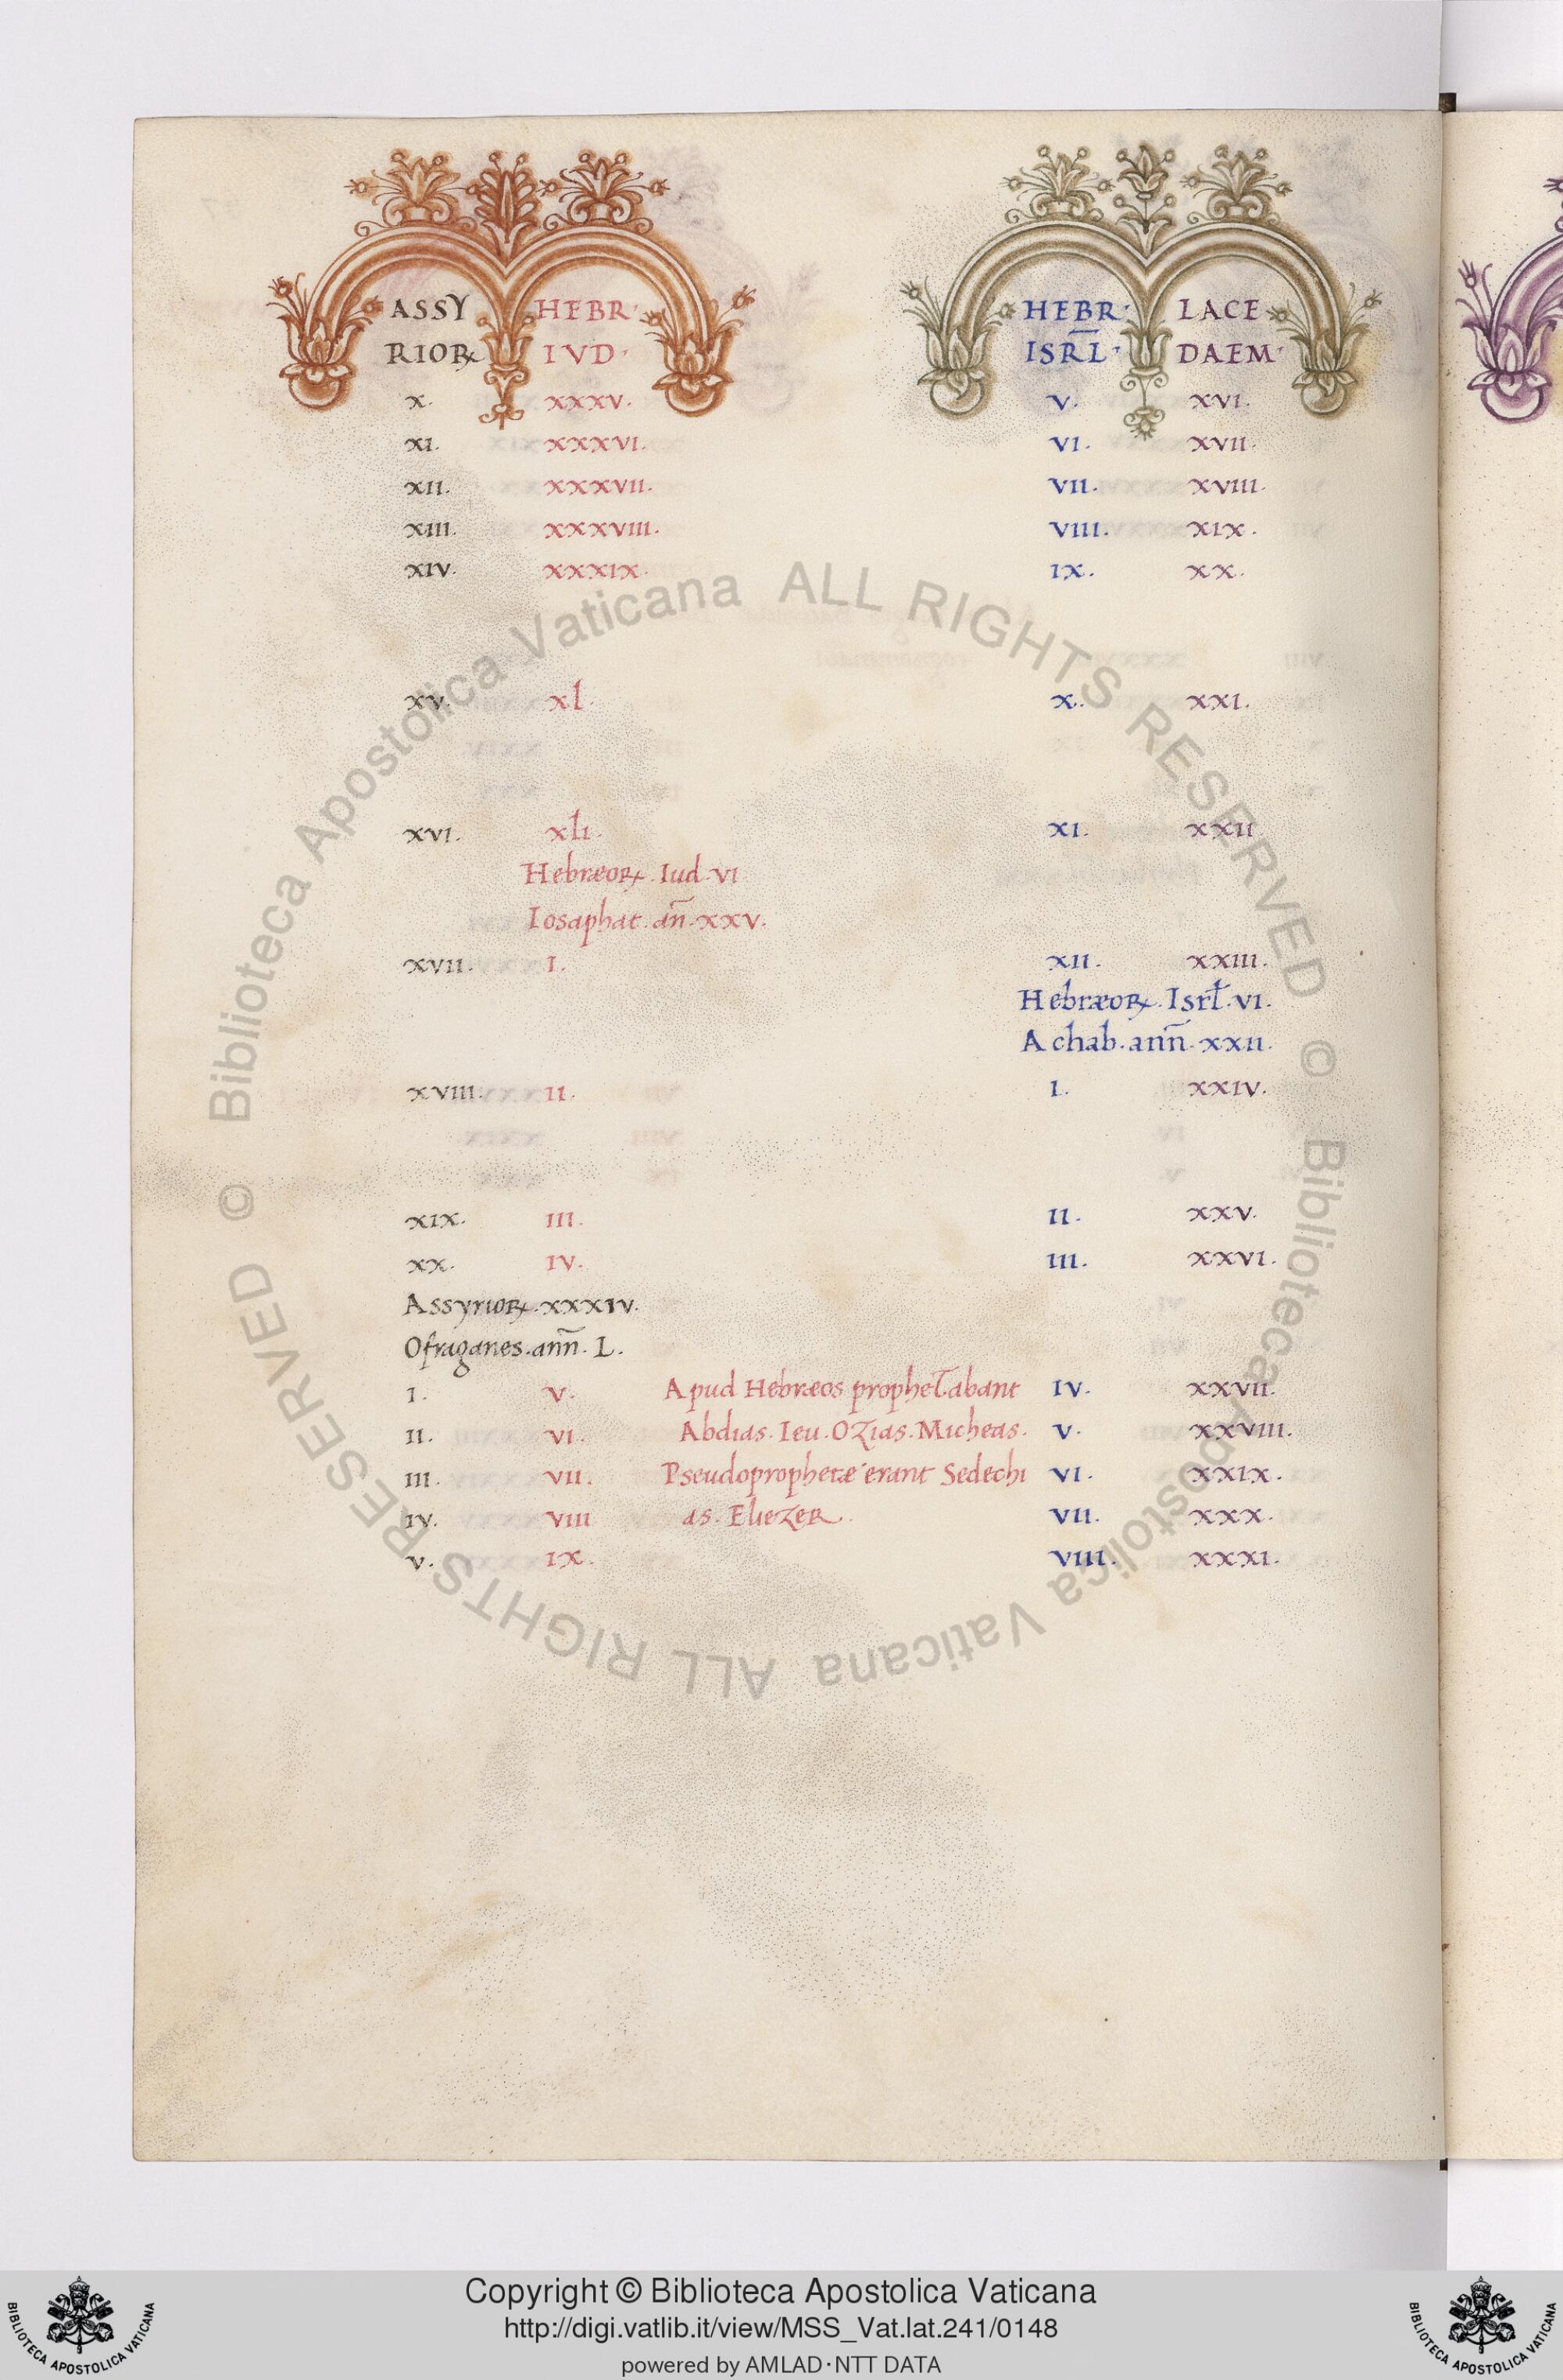 ASSY HEBR· HEBR· LACE
RIOꝝ IVD· ISRL̅· DAEM·
X. XXXV. V. XVI.
XI. XXXVI. VI. XVII.
XII. XXXVII. VII. XVIII.
XIII. XXXVIII. VIII. XIX.
XIV. XXXIX. IX. XX.
XV. xl. X. XXI.
XVI. xli. XI. XXII
Hebræoꝝ. Iud. VI
Iosaphat. an̅. XXV.
XVII. I. XII. XXIII.
Hebræoꝝ. Isrl̅. VI.
Achab. ann̅. XXII.
XVIII. II. I. XXIV.
XIX. III. II. XXV.
XX. IV. III. XXVI.
Assyrioꝝ. XXXIV.
Ofraganes. ann̅. L.
I. V. Apud Hebræos prophet̅abant IV. XXVII.
II. VI. Abdias. Ieu. Ozias. Micheas. V. XXVIII.
III. VII. Pseudoprophetæ erant Sedechi VI. XXIX.
IV. VIII as. Eliezer. VII. XXX.
V. IX. VIII. XXXI.
© Biblioteca Apostolica Vaticana ALL RIGHTS RESERVED © Biblioteca Apostolica Vaticana ALL RIGHTS RESERVED
Copyright © Biblioteca Apostolica Vaticana
http://digi.vatlib.it/view/MSS_Vat.lat.241/0148
powered by AMLAD·NTT DATA
BIBLIOTECA APOSTOLICA VATICANA
BIBLIOTECA APOSTOLICA VATICANA